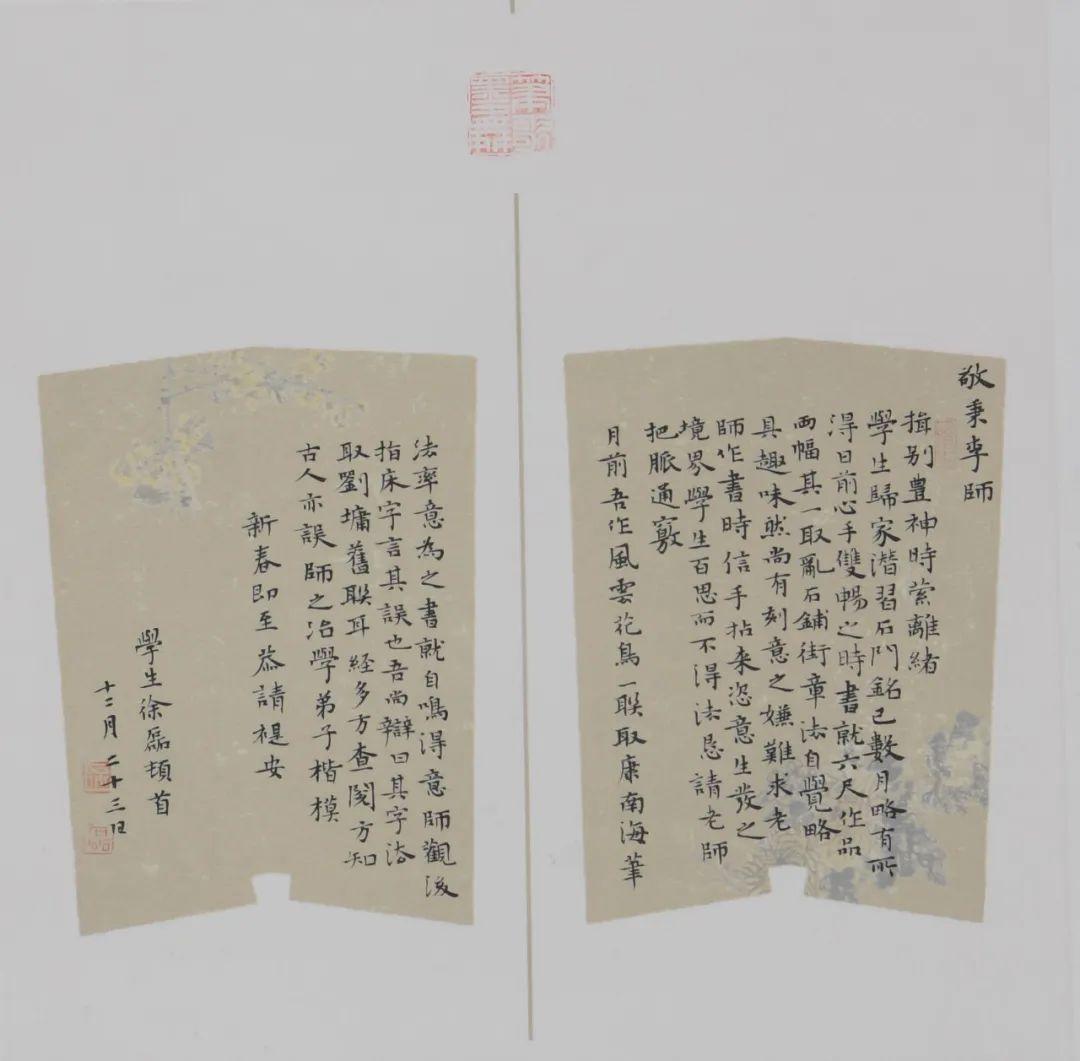 敬秉李師
揖别豊神時縈離緒
學生歸家潛習石門銘已數月略有所
得日前心手雙暢之時書就六尺作品
两幅其一取亂石鋪街章法自覺略
具趣味然尚有刻意之嫌難求老
師作書時信手拈来恣意生發之
境界學生百思而不得法恳請老師
把脈通竅
月前吾作風雲花鳥一聯取康南海筆
法率意為之書就自鳴得意師觀後
指床字言其誤也吾尚辯曰其字法
取劉墉舊联耳經多方查閱方知
古人亦誤師之治學弟子楷模
新春即至恭請禔安
學生徐磊頓首
十二月二十三日